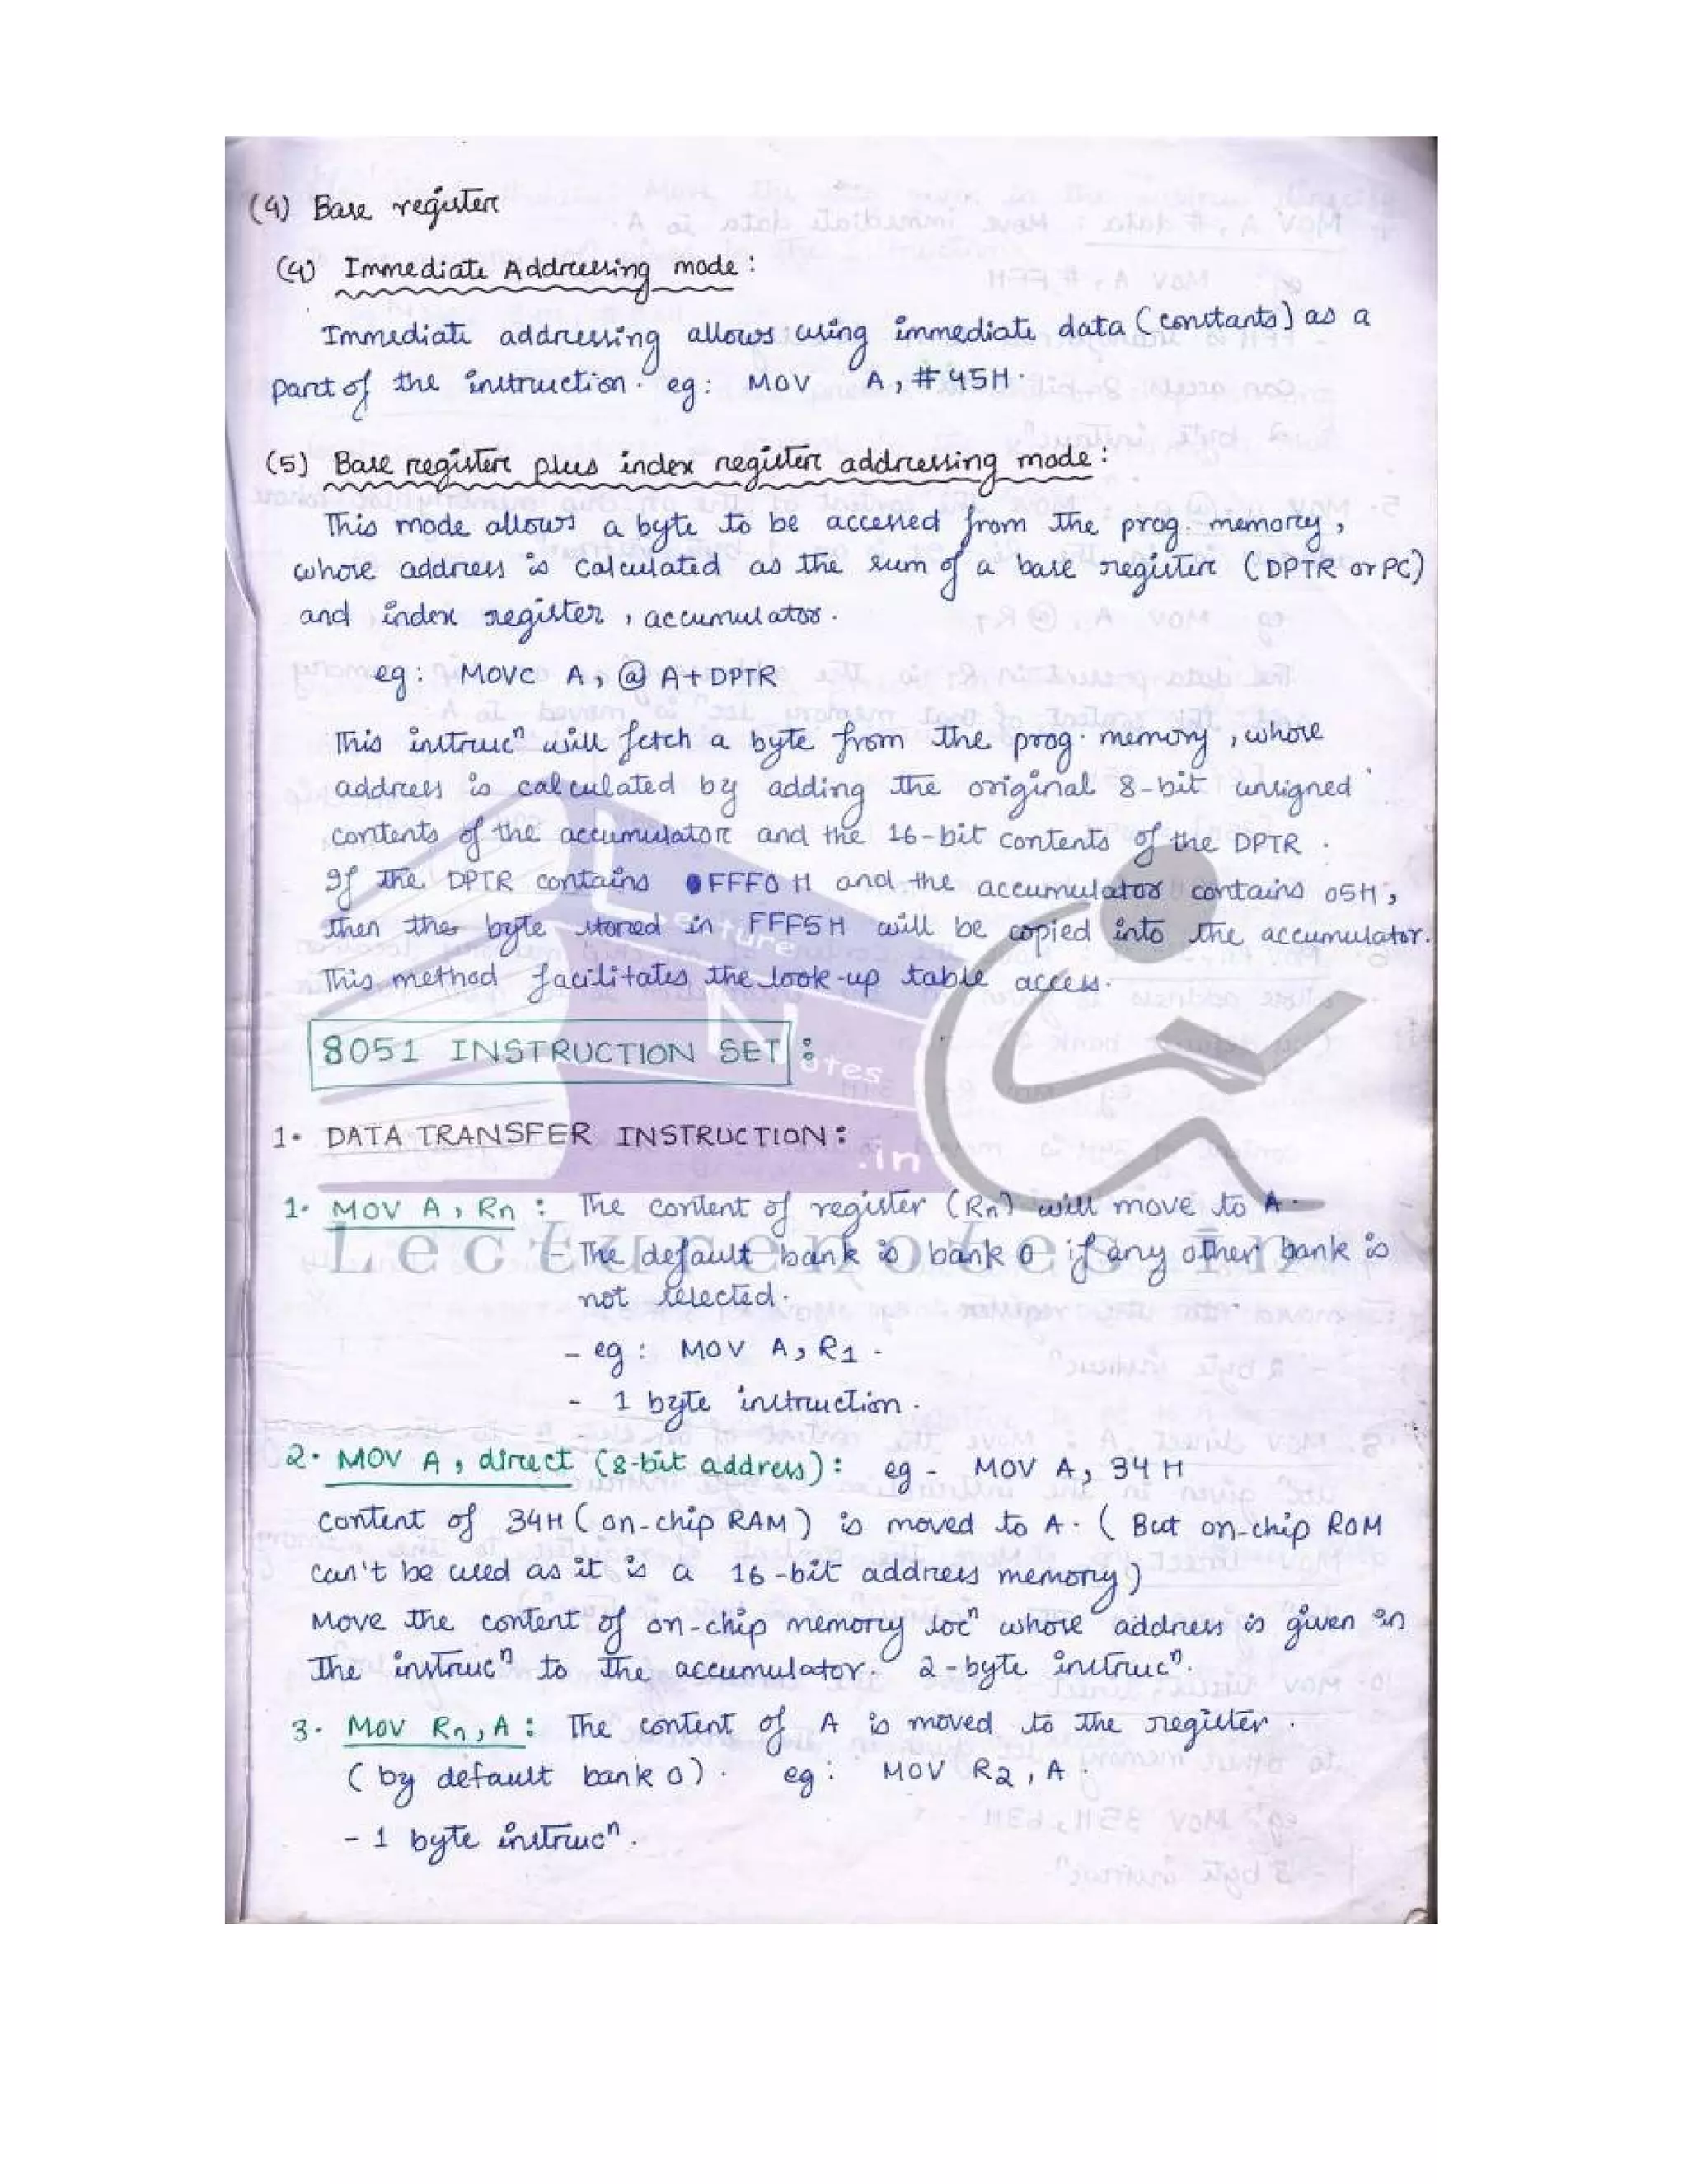 (4) Base register
(4) Immediate Addressing mode :
Immediate addressing allows using immediate data (constants) as a
part of the instruction. eg: MOV A, #45H.
(5) Base register plus index register addressing mode :
This mode allows a byte to be accessed from the prog. memory,
whose address is calculated as the sum of a base register (DPTR or PC)
and index register, accumulator.
eg: MOVC A, @ A+DPTR
This instrucⁿ will fetch a byte from the prog. memory, whose
address is calculated by adding the original 8-bit unsigned
contents of the accumulator and the 16-bit contents of the DPTR.
If the DPTR contains FFF0 H and the accumulator contains 05H,
then the byte stored in FFF5H will be copied into the accumulator.
This method facilitates the look-up table access.
8051 INSTRUCTION SET :
1. DATA TRANSFER INSTRUCTION :
1. MOV A, Rn : The content of register (Rn) will move to A.
- The default bank is bank 0 if any other bank is
not selected.
- eg : MOV A, R1.
- 1 byte instruction.
2. MOV A, direct (8-bit address) : eg - MOV A, 34 H
content of 34H (on-chip RAM) is moved to A. (But on-chip ROM
can't be used as it is a 16-bit address memory)
Move the content of on-chip memory locⁿ whose address is given in
the instrucⁿ to the accumulator. 2-byte instrucⁿ.
3. MOV Rn, A : The content of A is moved to the register.
(by default bank 0). eg : MOV R2, A.
- 1 byte instrucⁿ.
Lecture
Notes
.in
Lecturenotes.in